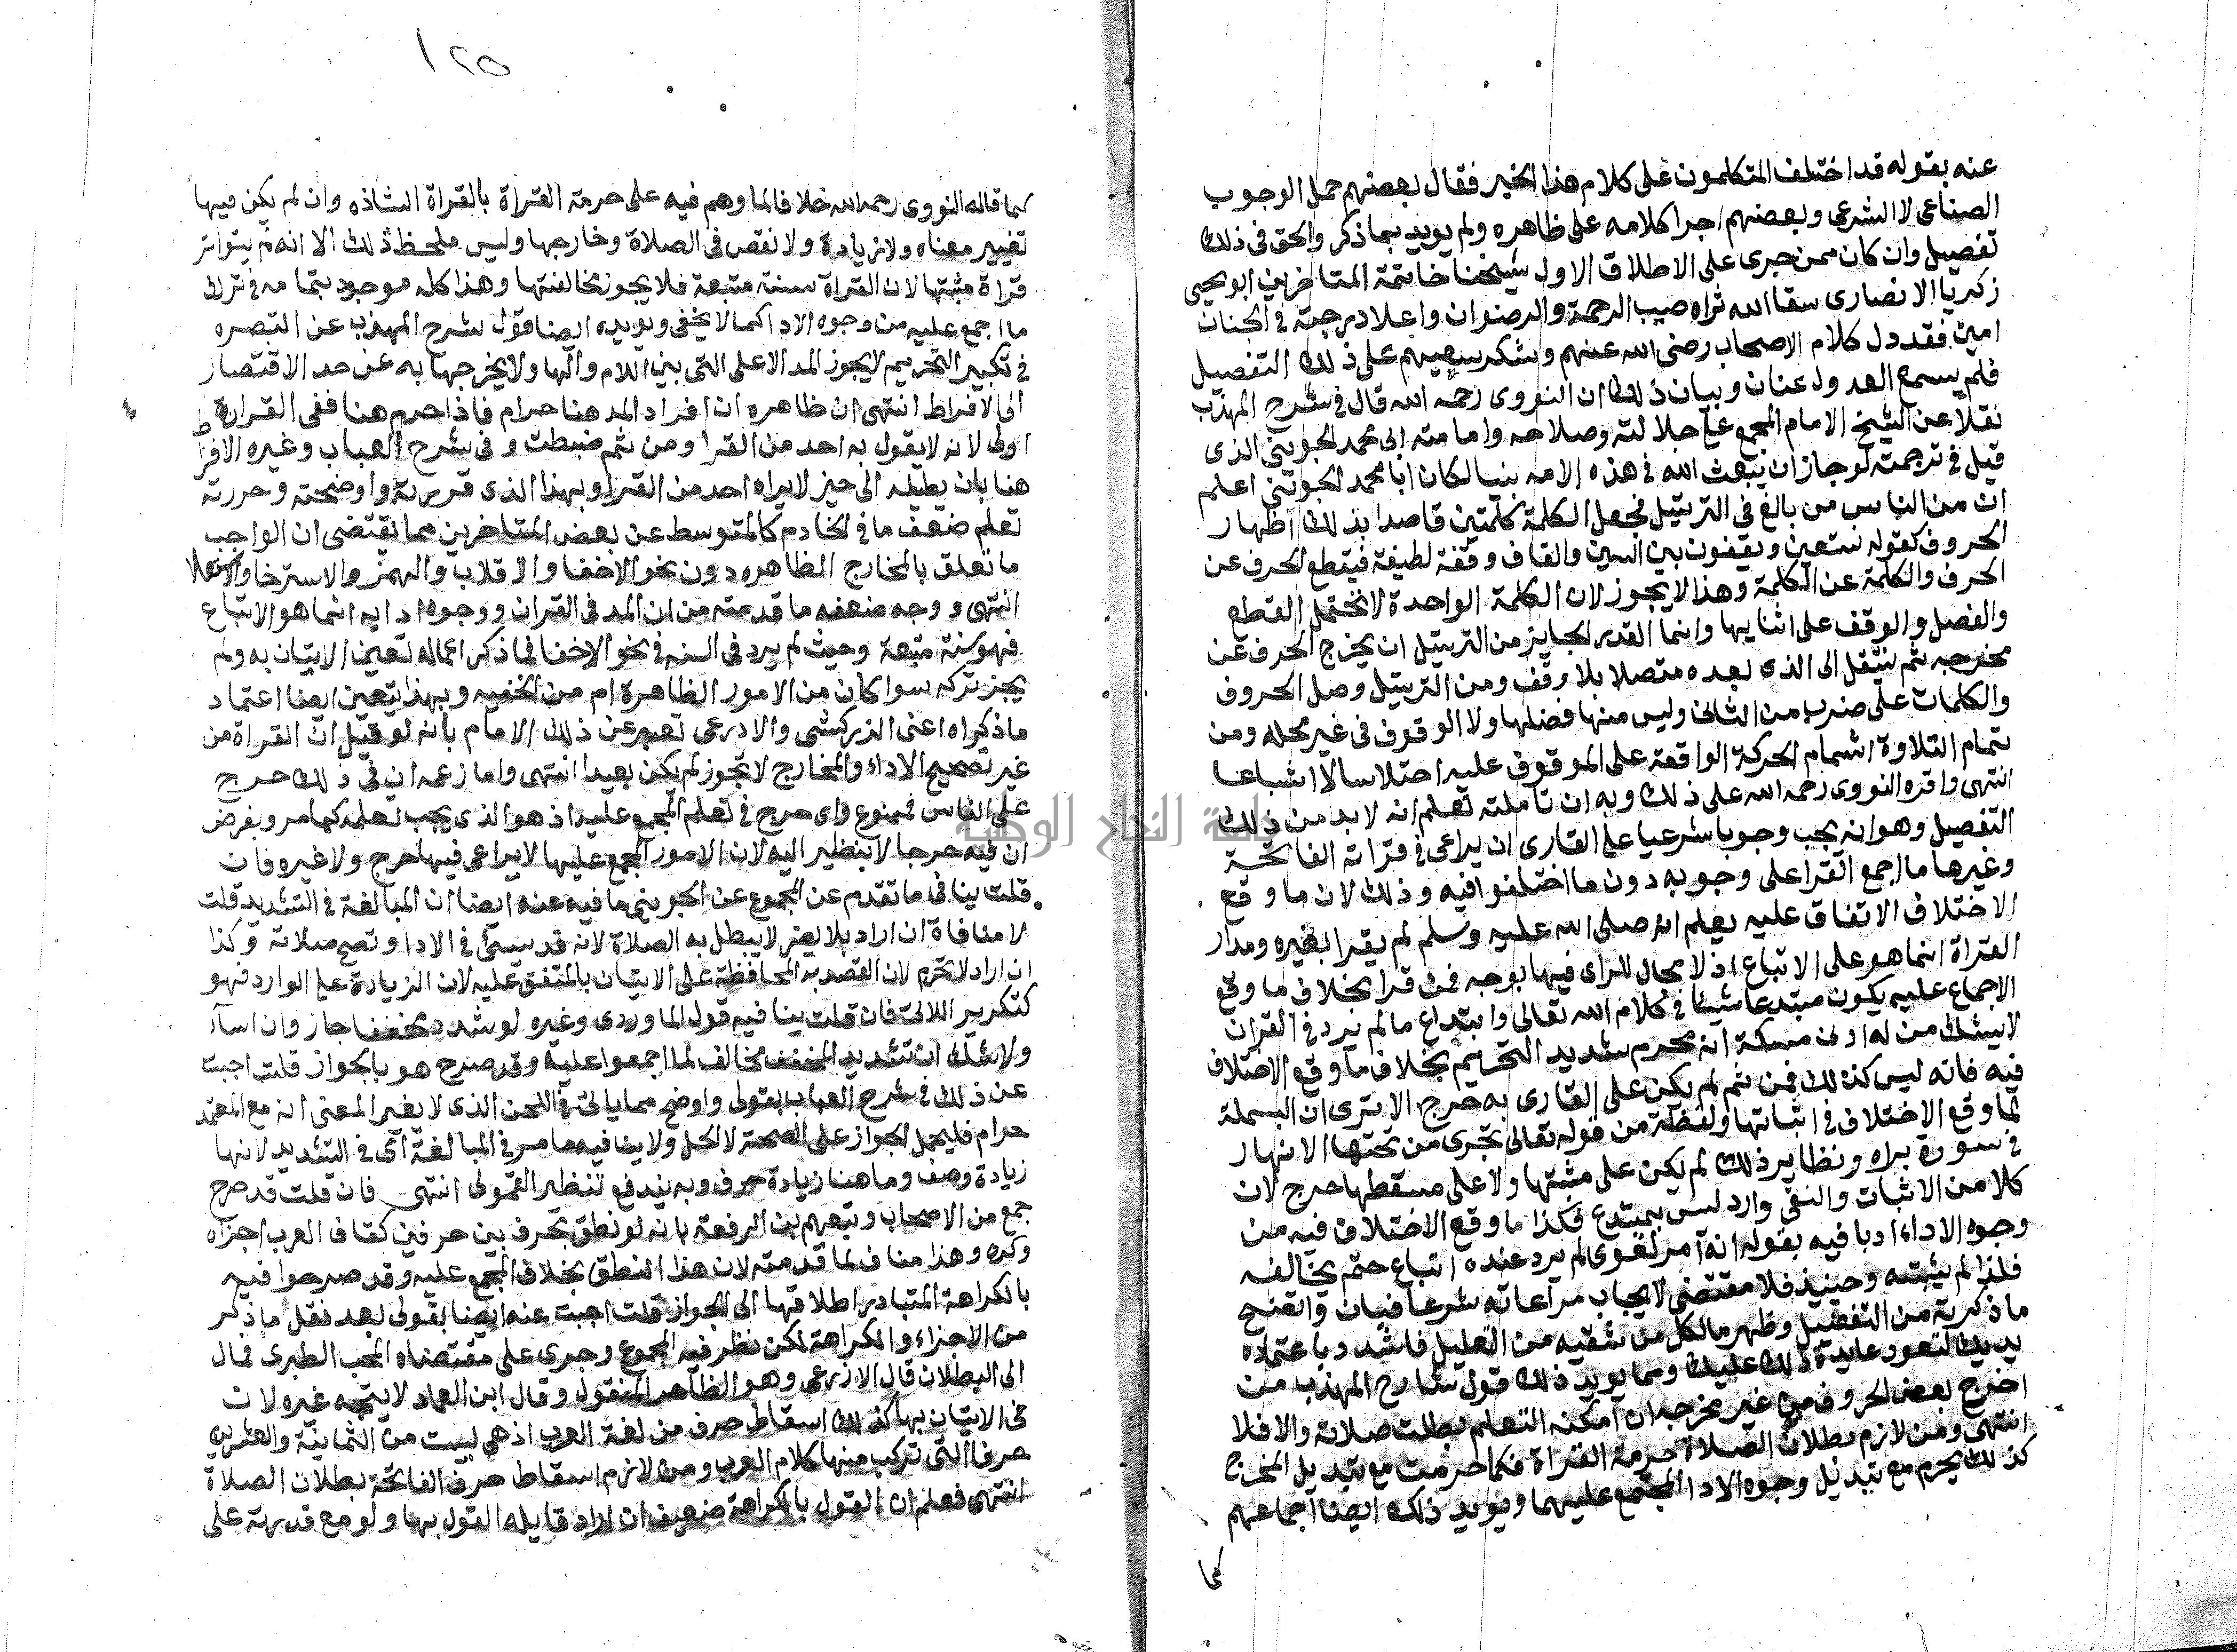 عنه بقوله قد اختلف المتكلمون على كلام هذا الخير فقال بعضهم حمل الوجوب
الصناعى لا الشرعى وبعضهم اجرا كلامه على ظاهره ولم يويد بما ذكر والحق فى ذلك
تفصيل وان كان ممن جرى على الاطلاق الاول شيخنا خاتمة المتاخرين ابو يحيى
زكريا الانصارى سقا الله ثراه صيب الرحمة والرضوان واعلا درجته فى الجنات
امين فقد دل كلام الاصحاب رضى الله عنهم وشكر سعيهم على ذلك التفصيل
فلم يسمع العدول عنان وبيان ذلك ان النووى رحمه الله قال فى شرح المهذب
نقلا عن الشيخ الامام المجمع على جلالته وصلاحه وامامته ابى محمد الجوينى الذى
قيل فى ترجمته لو جاز ان يبعث الله فى هذه الامه نبيا لكان ابا محمد الجوينى اعلم
ان من الناس من بالغ فى الترتيل فجعل الكلمة كلمتين قاصدا بذلك اظهار
الحروف كقوله نستعين ويقفون بين السين والقاف وقفة لطيفة فيقطع الحرف عن
الحرف والكلمة عن الكلمة وهذا لا يجوز لان الكلمة الواحدة لا تحتمل القطع
والفصل والوقف على اثنايها وانما القدر الجايز من الترتيل ان يخرج الحرف عن
مخرجه ثم ينتقل الى الذى بعده متصلا بلا وقف ومن الترتيل وصل الحروف
والكلمات على ضرب من الثانى وليس منها فضلها ولا الوقوف فى غير محله ومن
تمام التلاوة اشمام الحركة الواقعة على الموقوف عليه اختلاسا لا اشباعا
انتهى واقره النووى رحمه الله على ذلك وبه ان تاملته تعلم انه لا بد من ذلك
التفصيل وهو انه يجب وجوبا شرعيا على القارى ان يراعى فى قراته الفاتحة
وغيرها ما اجمع القرا على وجوبه دون ما اختلفوا فيه وذلك لان ما وقع
الاختلاف الاتفاق عليه يعلم انه صلى الله عليه وسلم لم يقرا بغيره ومدار
القراة انما هو على الاتباع اذ لا مجال للراى فيها بوجه فمن قرا بخلاف ما وقع
الاجماع عليه يكون مبتدعا شيئا فى كلام الله تعالى وابتداع ما لم يرد فى القران
لا يشك من له ادنى مسكة انه محرم شديد التحريم بخلاف ما وقع الاختلاف
فيه فانه ليس كذلك فمن ثم لم يكن على القارى به حرج الا ترى ان البسملة
لما وقع الاختلاف فى اثباتها ولفظة من قوله تعالى تجرى من تحتها الانهار
فى سورة براه ونظاير ذلك لم يكن على مثبتها ولا على مسقطها حرج لان
كلا من الاثبات والنفى وارد ليس بمبتدع فكذا ما وقع الاختلاف فيه من
وجوه الاداء ادبا فيه بقوله انه امر لغوى لم يرد عنده اتباع حتم يخالفه
فلذا لم يثبته وحينيذ فلا مقتضى لايجاب مراعاته شرعا فبان واتضح
ما ذكرته من التفصيل وظهر ما لكل من شقيه من التعليل فاشدد باعتماده
يديك لتعود عايدة ذلك عليك ومما يويد ذلك قول شارح المهذب من
اخرج بعض الحروف من غير مخرجه ان امكنه التعلم بطلت صلاته والا فلا
انتهى ومن لازم بطلان الصلاة حرمة القراة فكما حرمت مع تبديل المخرج
كذلك يحرم مع تبديل وجوه الادا المجتمع عليهما ويويد ذلك ايضا اجماعهم
كما
١٢٥
كما قاله النووى رحمه الله خلافا لما وهم فيه على حرمة القراة بالقراة الشاذه وان لم يكن فيها
تغيير معناه ولا زيادة ولا نقص فى الصلاة وخارجها وليس ملحظ ذلك الا انه لم يتواتر
قراة مثبتها لان القراة سنة متبعة فلا يجوز مخالفتها وهذا كله موجود بتمامه فى ترك
ما اجمع عليه من وجوه الادا كما لا يخفى ويويده ايضا قول شرح المهذب عن التبصره
فى تكبير التحريم لا يجوز المد الا على التى بين اللام والها ولا يخرجها به عن حد الاقتصار
الى الافراط انتهى ان ظاهره ان افراد المد هنا حرام فاذا حرم هنا ففى القراة
اولى لانه لا يقول به احد من القرا ومن ثم ضبطت وفى شرح العباب وغيره الافراط
هنا بان يطيله الى حيز لا يراه احد من القرا وبهذا الذى قررته واوضحته وحررته
تعلم ضعف ما فى الخادم كالمتوسط عن بعض المتاخرين مما تقتضى ان الواجب
ما تعلق بالمخارج الظاهره دون نحو الاخفا والاقلاب والهمز والاسترخا والاستعلا
انتهى ووجه ضعفه ما قدمته من ان المد فى القران ووجوه ادايه انما هو الاتباع
فهو سنة متبعة وحيث لم يرد فى السنه فى نحو الاخفا فيما ذكر اعماله تعين الاتيان به ولم
يجز تركه سوا كان من الامور الظاهرة ام من الخفيه وبهذا يتعين ايضا اعتماد
ما ذكراه اعنى الزركشى والادرعى تعبير عن ذلك الامام بانه لو قيل ان القراة من
غير تصحيح الاداء والمخارج لا تجوز لم يكن بعيدا انتهى واما زعمه ان فى ذلك حرج
على الناس فممنوع واى حرج فى تعلم المجمع عليه اذ هو الذى يجب تعلمه كما مر وبفرض
ان فيه حرجا لا ينظير اليه لان الامور المجمع عليها لا يراعى فيها حرج ولا غيره فان
قلت ينافى ما تقدم عن المجموع عن الجوينى ما فيه عنه ايضا ان المبالغة فى التشديد قلت
لا منافاة ان اراد بلا يضر لا يبطل به الصلاة لانه قد يسئ فى الادا وتصح صلاته وكذا
ان اراد لا تحرم لان القصد به المحافظة على الاتيان بالمتفق عليه لان الزيادة على الوارد فهو
كتكرير اللالت فان قلت ينا فيه قول الماوردى وغيره لو شدد مخففا جاز وان اساء
ولا شك ان تشديد المخفف مخالف لما اجمعوا عليه وقد صرح هو بالجواز قلت اجبت
عن ذلك فى شرح العباب بقولى واوضح مما ياتى فى اللحن الذى لا يغير المعنى انه مع المعتمد
حرام فليحمل الجواز على الصحة لا الحل ولا ينا فيه ما مر فى المبالغة اى فى التشديد لانها
زيادة وصف وما هنا زيادة حرف وبه يندفع تنظير القمولى انتهى فان قلت قد صرح
جمع من الاصحاب وتبعهم بن الرفعة بانه لو نطق بحرف بين حرفين كقاف العرب اجزاه
وكره وهذا مناف لما قدمته لان هذا النطق بخلاف المجمع عليه وقد صرحوا فيه
بالكراهة المتبادر اطلاقها الى الجواز قلت اجبت عنه ايضا بقولى بعد نقل ما ذكر
من الاجزاء والكراهة لكن نظر فيه المجموع وجرى على مقتضاه المحب الطبرى فمال
الى البطلان قال الازرعى وهو الظاهر المنقول وقال ابن العماد لا يتجه غيره لان
فى الاتيان بها كذلك اسقاط حرف من لغة العرب اذ هى ليست من الثمانية والعشرين
حرفا التى تركب منها كلام العرب ومن لازم اسقاط حرف الفاتحة بطلان الصلاة
انتهى فعلم ان القول بالكراهة ضعيف ان اراد قايله القول بها ولو مع قدرته على
جامعة النجاح الوطنية